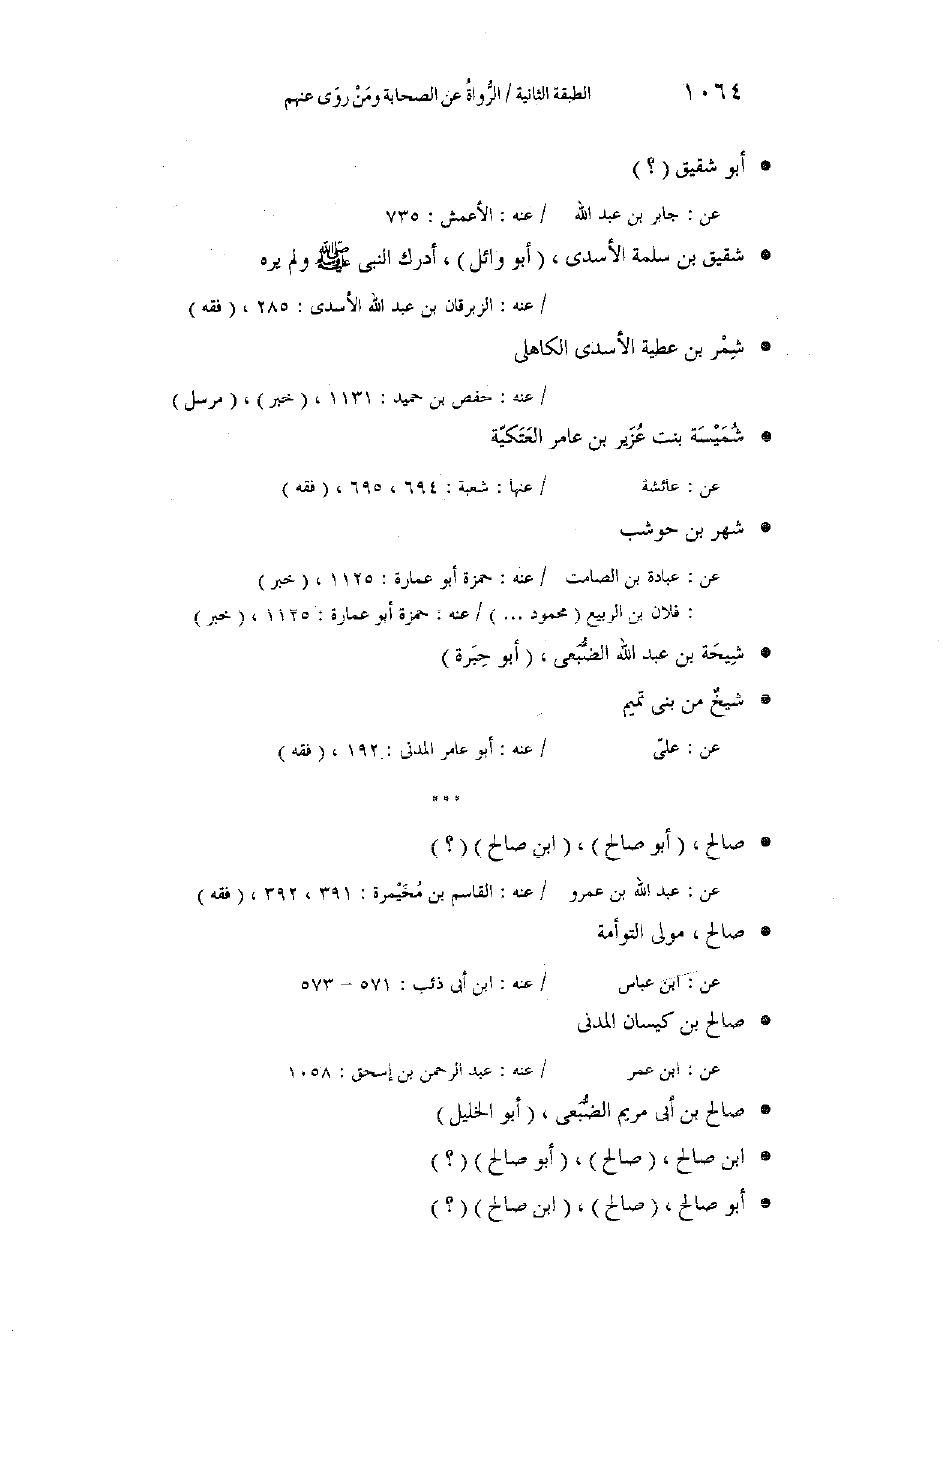 ١٠٦٤ الطبقة الثانية / الرُّواةُ عن الصحابة ومَنْ روَى عنهم
• أبو شقيق ( ؟ )
عن : جابر بن عبد الله / عنه : الأعمش : ٧٣٥
• شقيق بن سلمة الأسدى ، ( أبو وائل ) ، أدرك النبى ﷺ ولم يره
/ عنه : الزبرقان بن عبد الله الأسدى : ٢٨٥ ، ( فقه )
• شِمْر بن عطية الأسدى الكاهلى
/ عنه : حفص بن حميد : ١١٣١ ، ( خبر ) ، ( مرسل )
• شُمَيْسَة بنت عُزَير بن عامر العَتَكيّة
عن : عائشة / عنها : شعبة : ٦٩٤ ، ٦٩٥ ، ( فقه )
• شهر بن حوشب
عن : عبادة بن الصامت / عنه : حمزة أبو عمارة : ١١٢٥ ، ( خبر )
: فلان بن الربيع ( محمود ... ) / عنه : حمزة أبو عمارة : ١١٢٥ ، ( خبر )
• شِيحَة بن عبد الله الضُّبَعى ، ( أبو حِبَرة )
• شيخٌ من بنى تميم
عن : علىّ / عنه : أبو عامر المدنى : ١٩٢ ، ( فقه )
***
• صالح ، ( أبو صالح ) ، ( ابن صالح ) ( ؟ )
عن : عبد الله بن عمرو / عنه : القاسم بن مُخَيْمرة : ٣٩١ ، ٣٩٢ ، ( فقه )
• صالح ، مولى التوأمة
عن : ابن عباس / عنه : ابن أبى ذئب : ٥٧١ - ٥٧٣
• صالح بن كيسان المدنى
عن : ابن عمر / عنه : عبد الرحمن بن إسحق : ١٠٥٨
• صالح بن أبى مريم الضُّبَعى ، ( أبو الخليل )
• ابن صالح ، ( صالح ) ، ( أبو صالح ) ( ؟ )
• أبو صالح ، ( صالح ) ، ( ابن صالح ) ( ؟ )